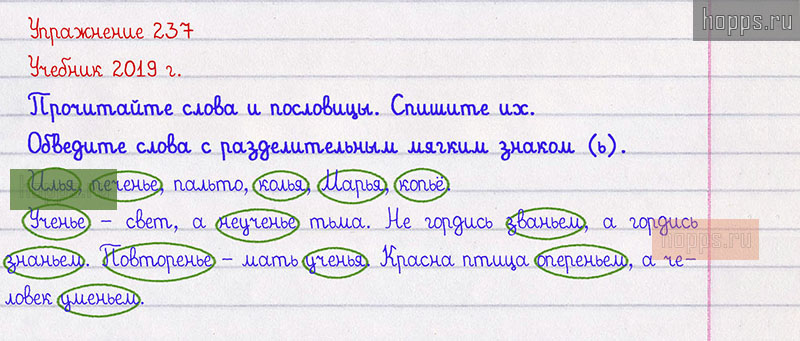 hopps.ru
Упражнение 237
Учебник 2019 г.
Прочитайте слова и пословицы. Спишите их.
Обведите слова с разделительным мягким знаком (ь).
Илья, печенье, пальто, колья, Марья, копьё.
Ученье – свет, а неученье тьма. Не гордись званьем, а гордись
hopps.ru
знаньем. Повторенье – мать ученья. Красна птица опереньем, а че-
ловек уменьем.